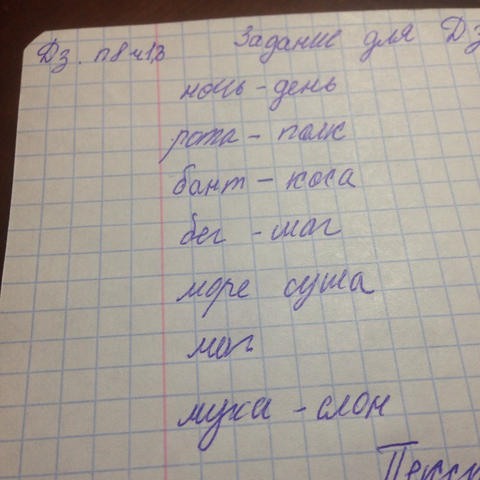 Дз. п8 ч1,3 Задание для Дз
ночь - день
рота - полк
бант - коса
бег - шаг
море суша
муха - слон